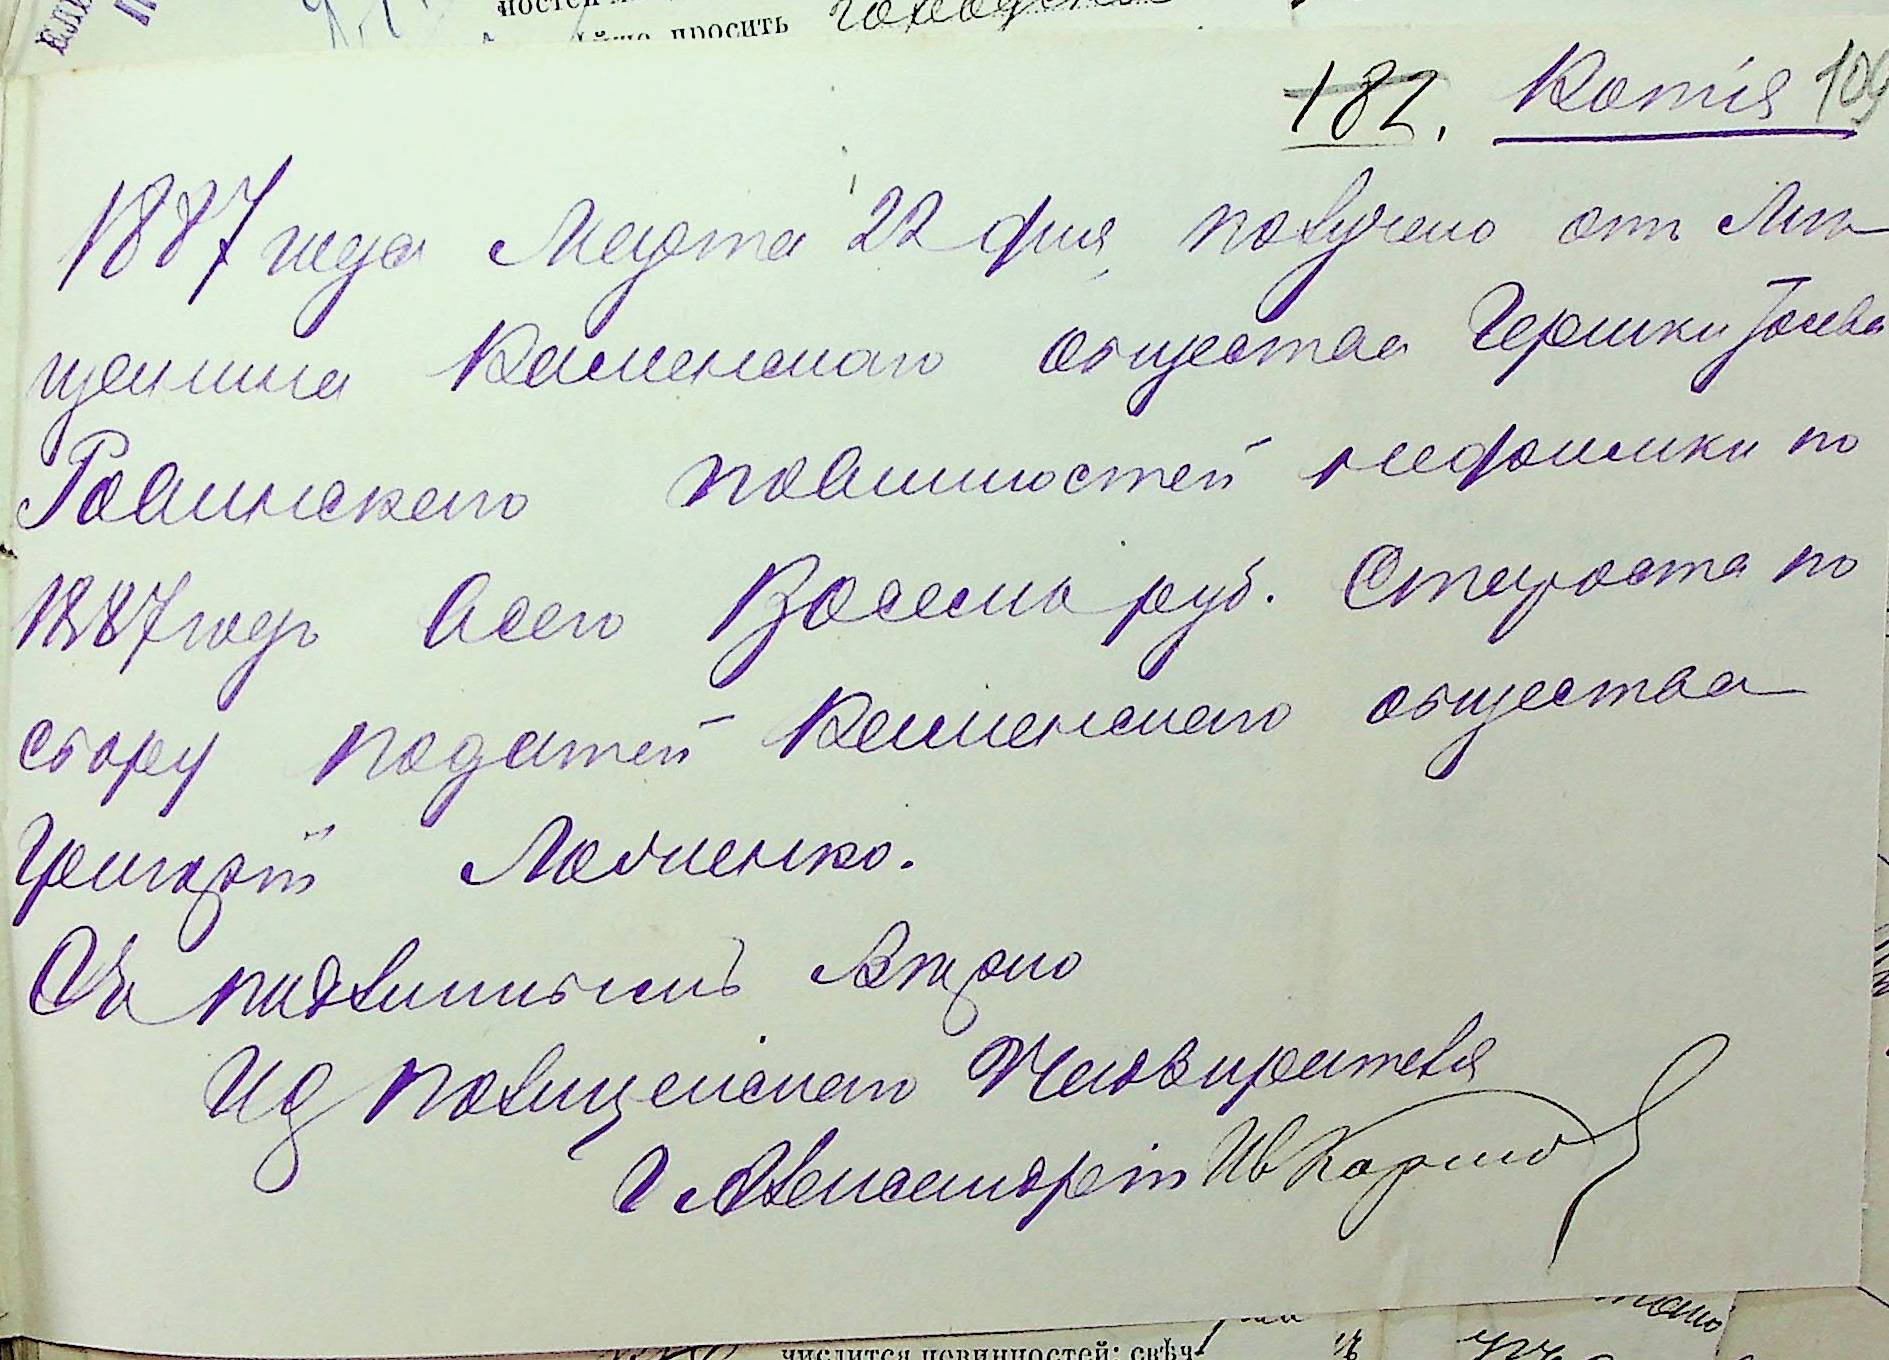 ностей
просить городск
182. Копія 109
1887 года Марта 22 дня получено от Мѣ
щанина Каменскаго общества Гершки Іосева
Ровинскаго повинностей недоимки по
1887 годъ всего Восемь руб. Староста по
сбору податей Каменскаго общества
Григорій
Съ подлиннымъ вѣрно
ИД Полицейскаго Надзирателя
г Александріи Ив
числится повинностей; свѣч-